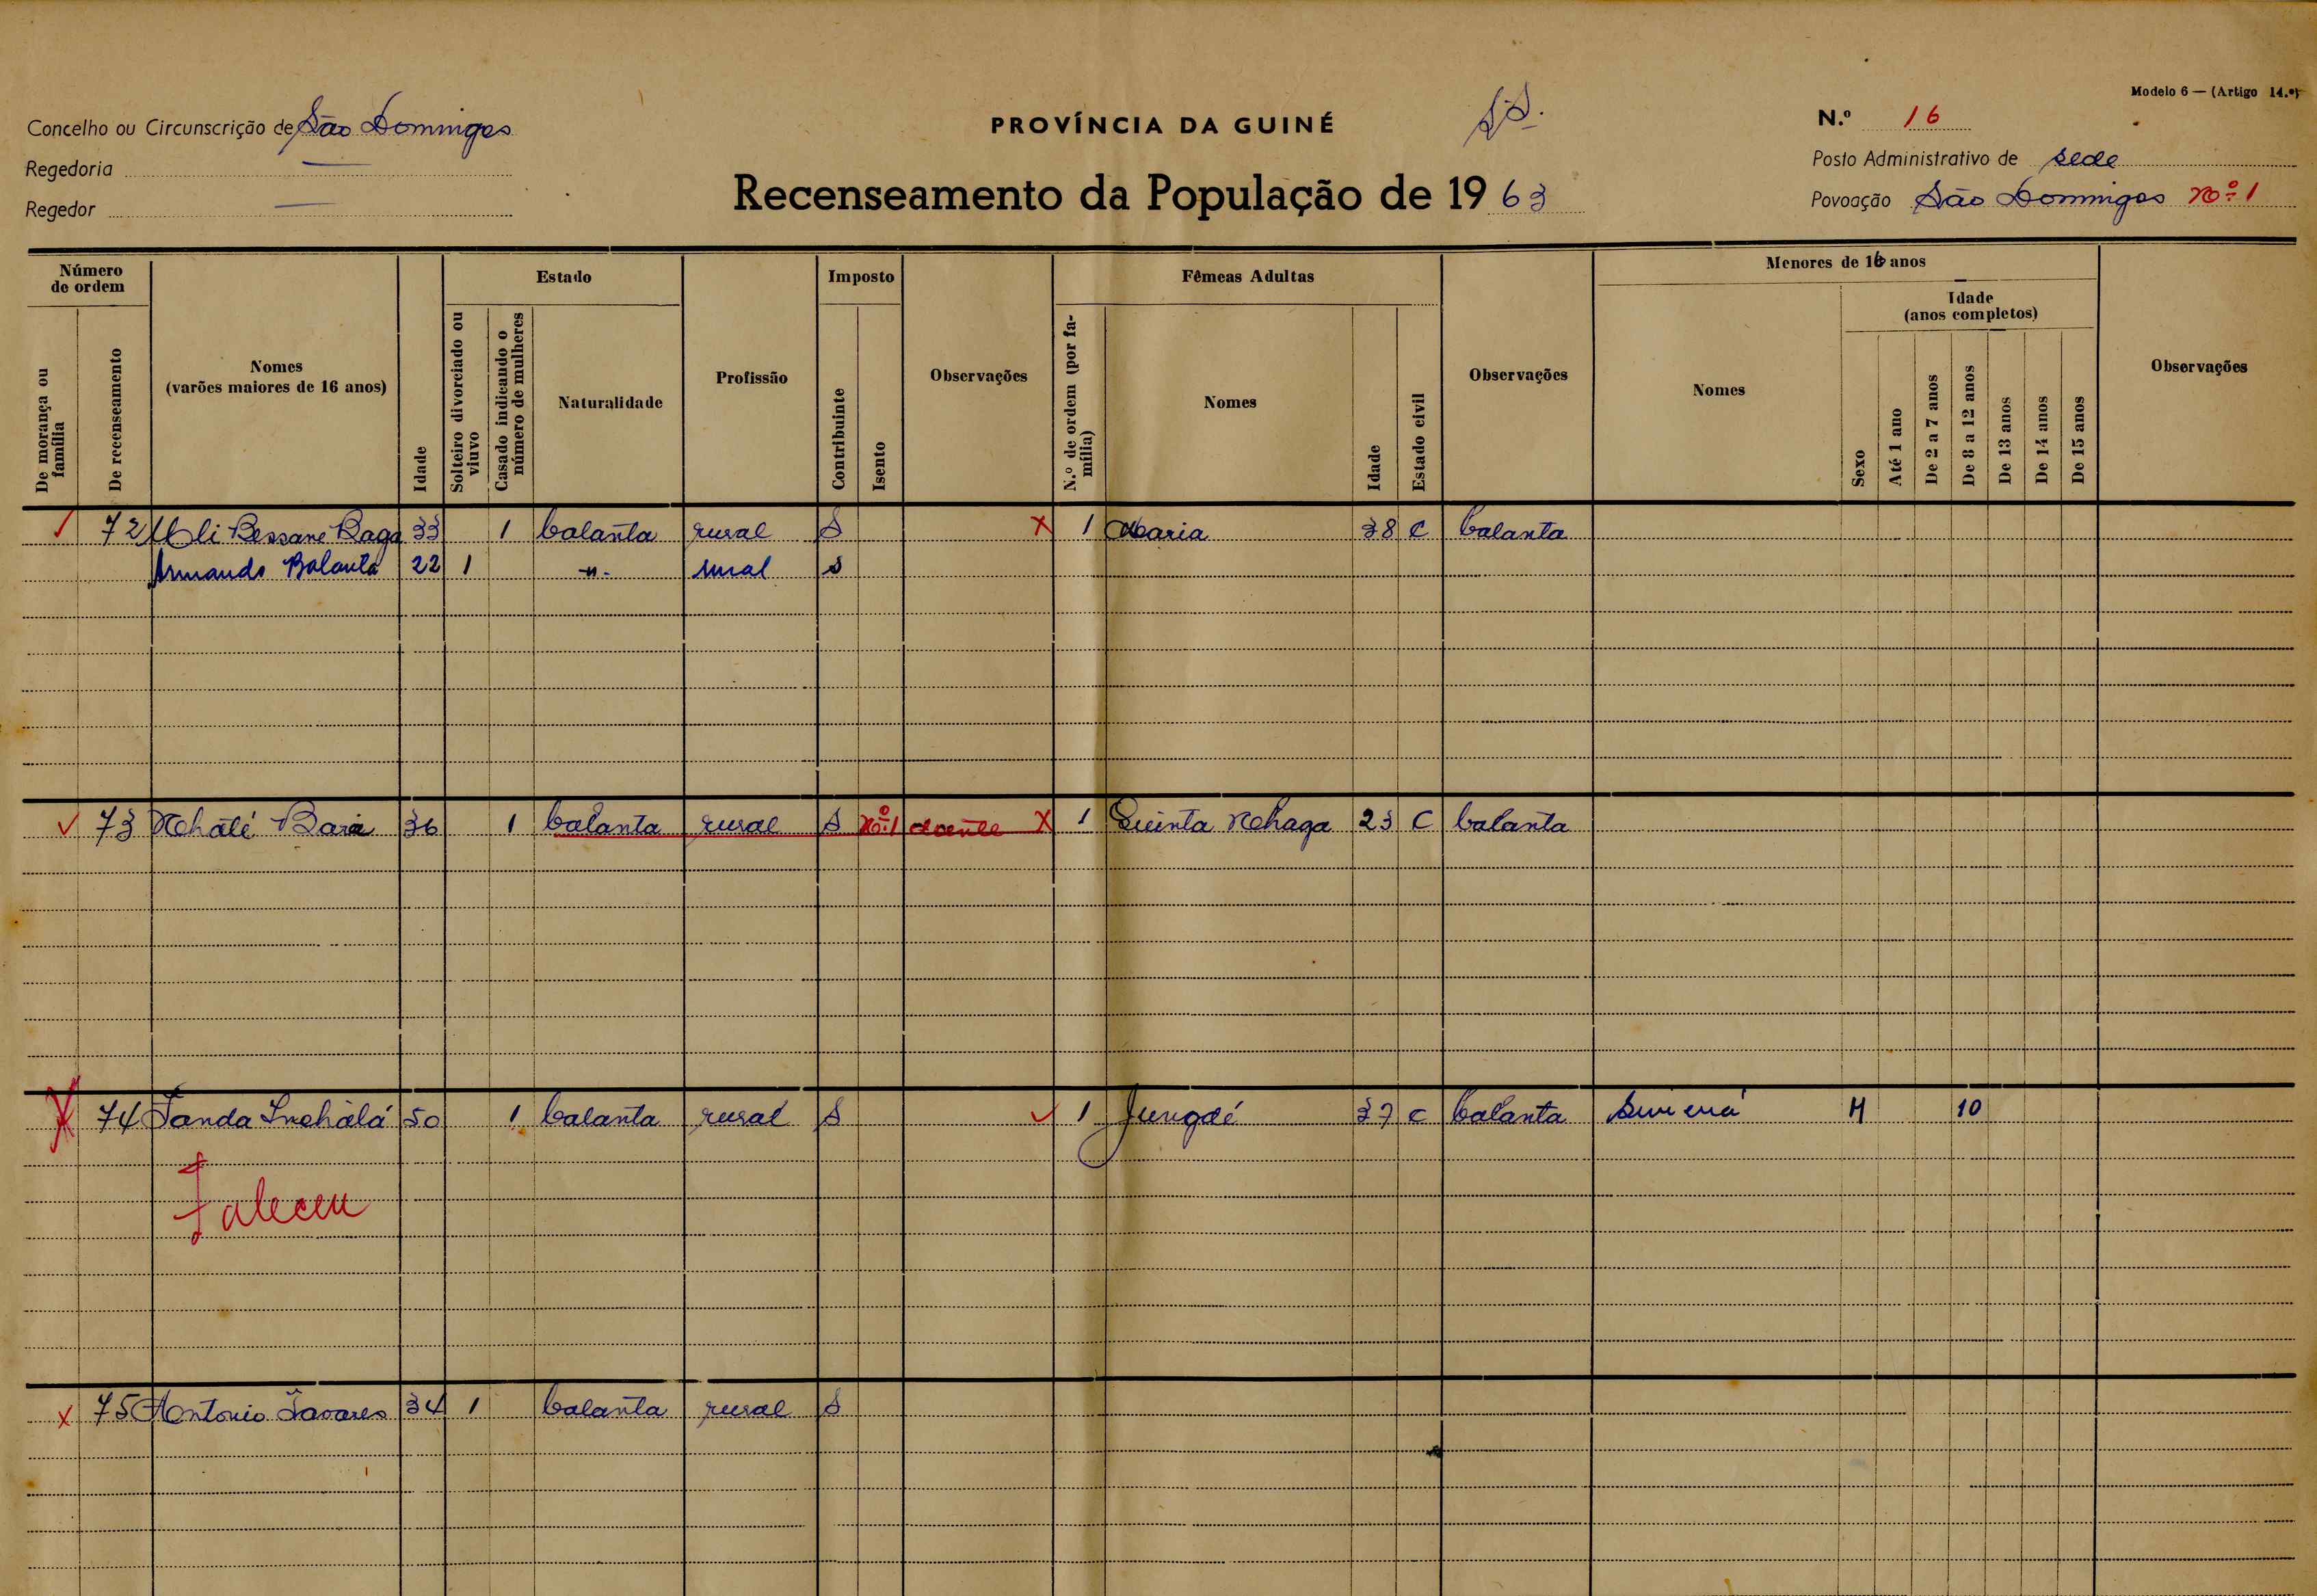 Modelo 6 — (Artigo 14.º)
Concelho ou Circunscrição de São Domingos
PROVÍNCIA DA GUINÉ
N.º 16
Regedoria —
Posto Administrativo de sede
Regedor —
Recenseamento da População de 1963
Povoação São Domingos Nº 1
Número de ordem
De morança ou família
De recenseamento
Nomes
(varões maiores de 16 anos)
Idade
Estado
Solteiro divorciado ou viuvo
Casado indicando o número de mulheres
Naturalidade
Profissão
Imposto
Contribuinte
Isento
Observações
Fêmeas Adultas
N.º de ordem (por família)
Nomes
Idade
Estado civil
Observações
Menores de 16 anos
Nomes
Sexo
Idade
(anos completos)
Até 1 ano
De 2 a 7 anos
De 8 a 12 anos
De 13 anos
De 14 anos
De 15 anos
Observações
72 Bessane 33 1 balanta rural S X 1 Maria 38 C balanta
Armando Balanta 22 1 -"- rural S
73 Nhaté 36 1 balanta rural S Nº 1 doente X 1 Quinta Nhaga 23 C balanta
X 74 1 balanta rural S 1 37 C balanta M 10
Faleceu
X 75 Antonio Tavares 34 1 balanta rural S